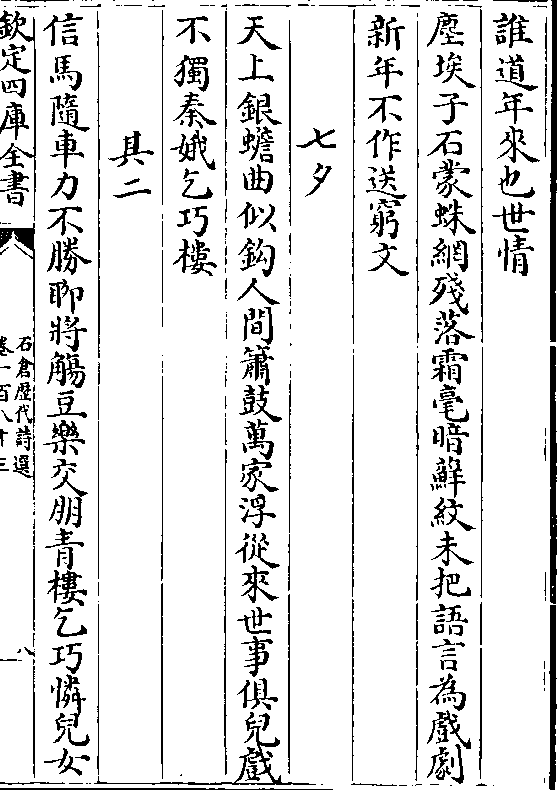 誰道年來也世情
塵埃子石蒙蛛網殘落霜毫暗蘚紋未把語言為戲劇
新年不作送窮文
七夕
天上銀蟾曲似鈎人間簫鼓萬家浮從來世事俱兒戲
不獨秦娥乞巧樓
其二
信馬隨車力不勝聊將觴豆樂交朋青樓乞巧憐兒女
欽定四庫全書
石倉歷代詩選
卷一百八十三
八